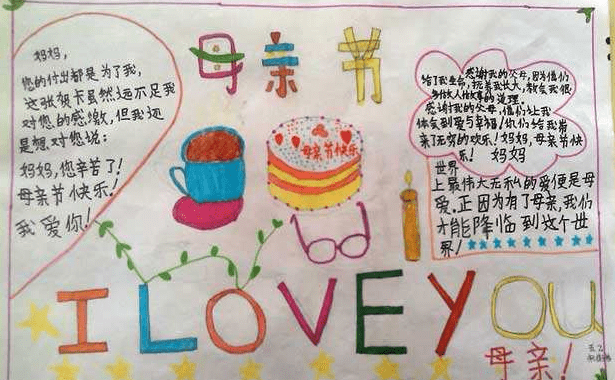 母亲节
妈妈,
您的付出都是为了我,
这张贺卡虽然远不足我
对您的感激,但我还
是想对您说:
妈妈,您辛苦了!
母亲节快乐!
我爱你!
母亲节快乐
感谢我的父母,因为他们
给了我生命,抚养我长大,教会我很
多做人做事的道理.
感谢我的父母,他们让我
体会到爱与幸福!他们给我带
来了无穷的欢乐!妈妈,母亲节快
乐! 妈妈
世界
上最伟大无私的爱便是母
爱.正因为有了母亲,我们
才能降临到这个世
界!
I LOVE YOU
母亲!